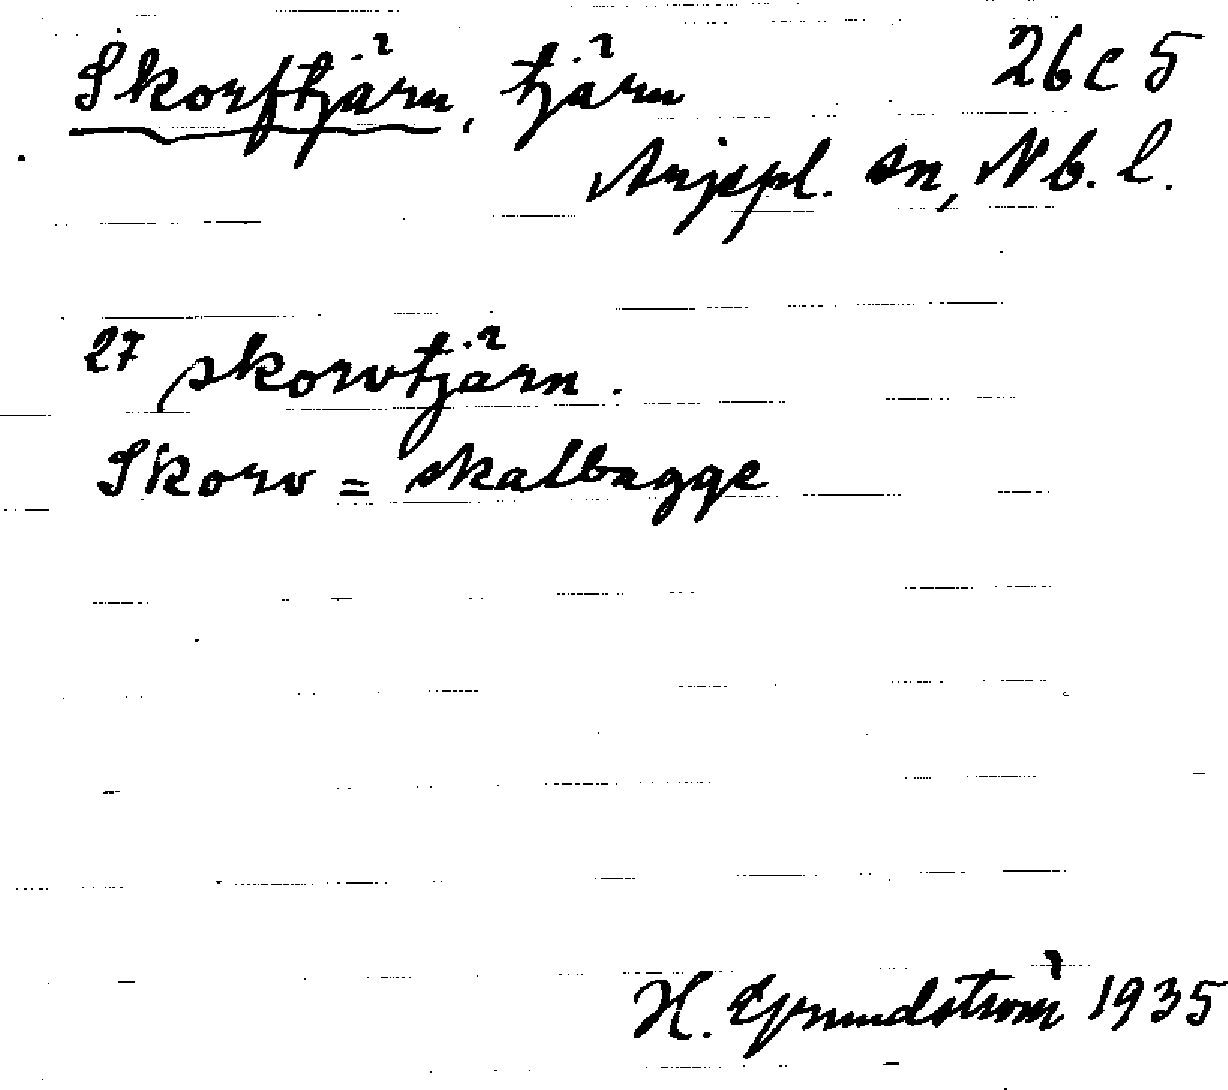 Skorftjärn, tjärn 26 c 5
Arjepl. sn, Nb. l.
27 skorvtjärn.
Skorv = skalbagge
H. Grundström 1935